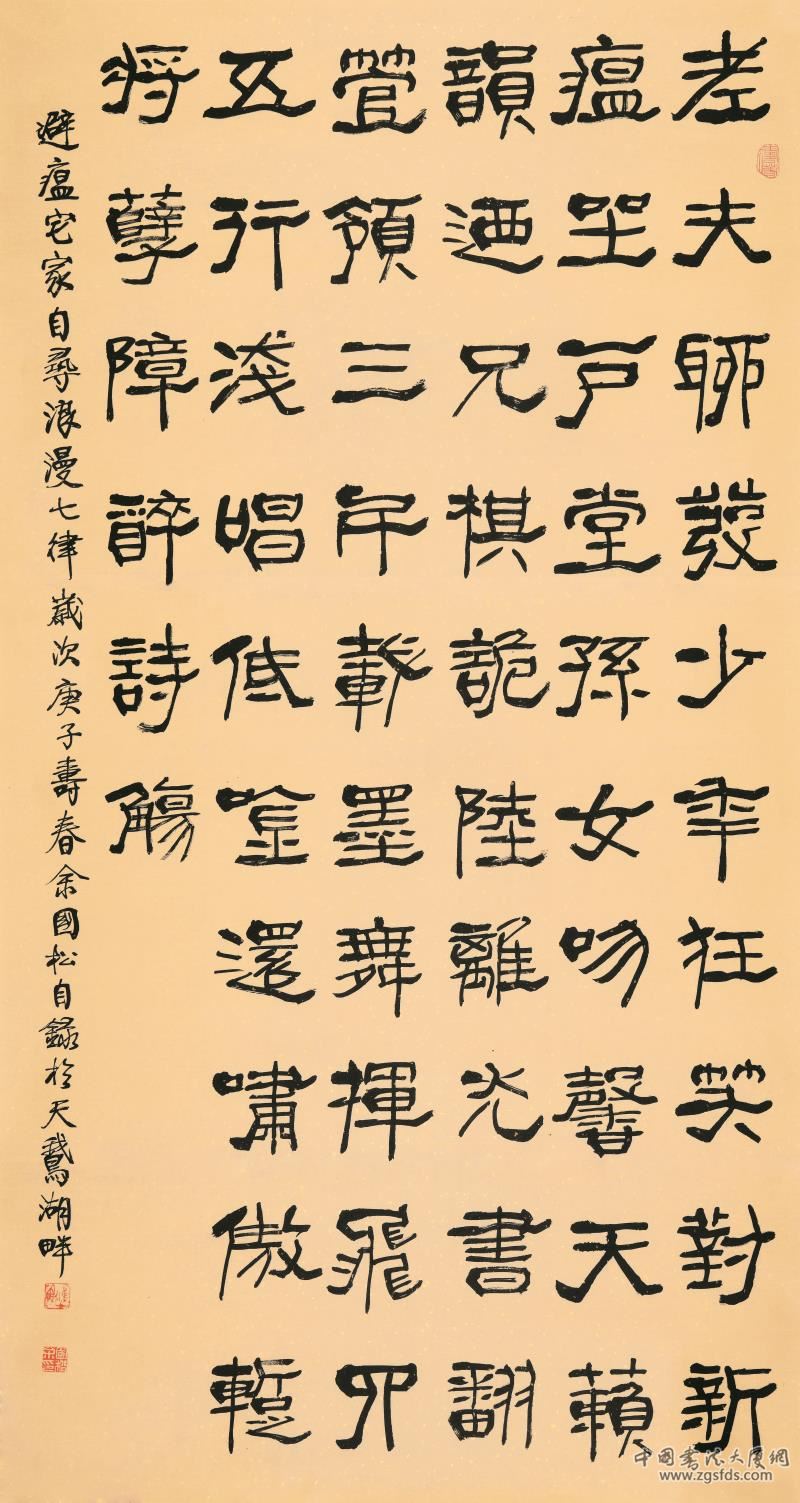 老夫聊發少年狂笑對新
瘟坐戶堂孫女吻馨天籟
韻迺兄棋詭陸離光書翻
管領三千載墨舞揮飛四
五行淺唱低唫還嘯傲
將孽障醉詩觴
避瘟宅家自尋浪漫七律歲次庚子壽春余國松自錄於天鵝湖畔
中國書法大廈網
www.zgsfds.com